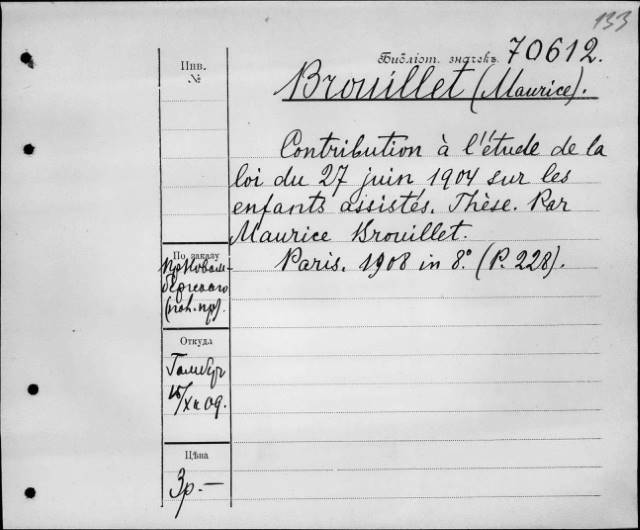 133
Библіот. значекъ 70612.
Инв.
№
Brouillet (Maurice).
Contribution à l'étude de la
loi du 27 juin 1904 sur les
enfants assistés. Thèse. Par
Maurice Brouillet.
Paris. 1908 in 8°. (P. 228).
По заказу
Откуда
XII 09.
Цѣна
3р.—